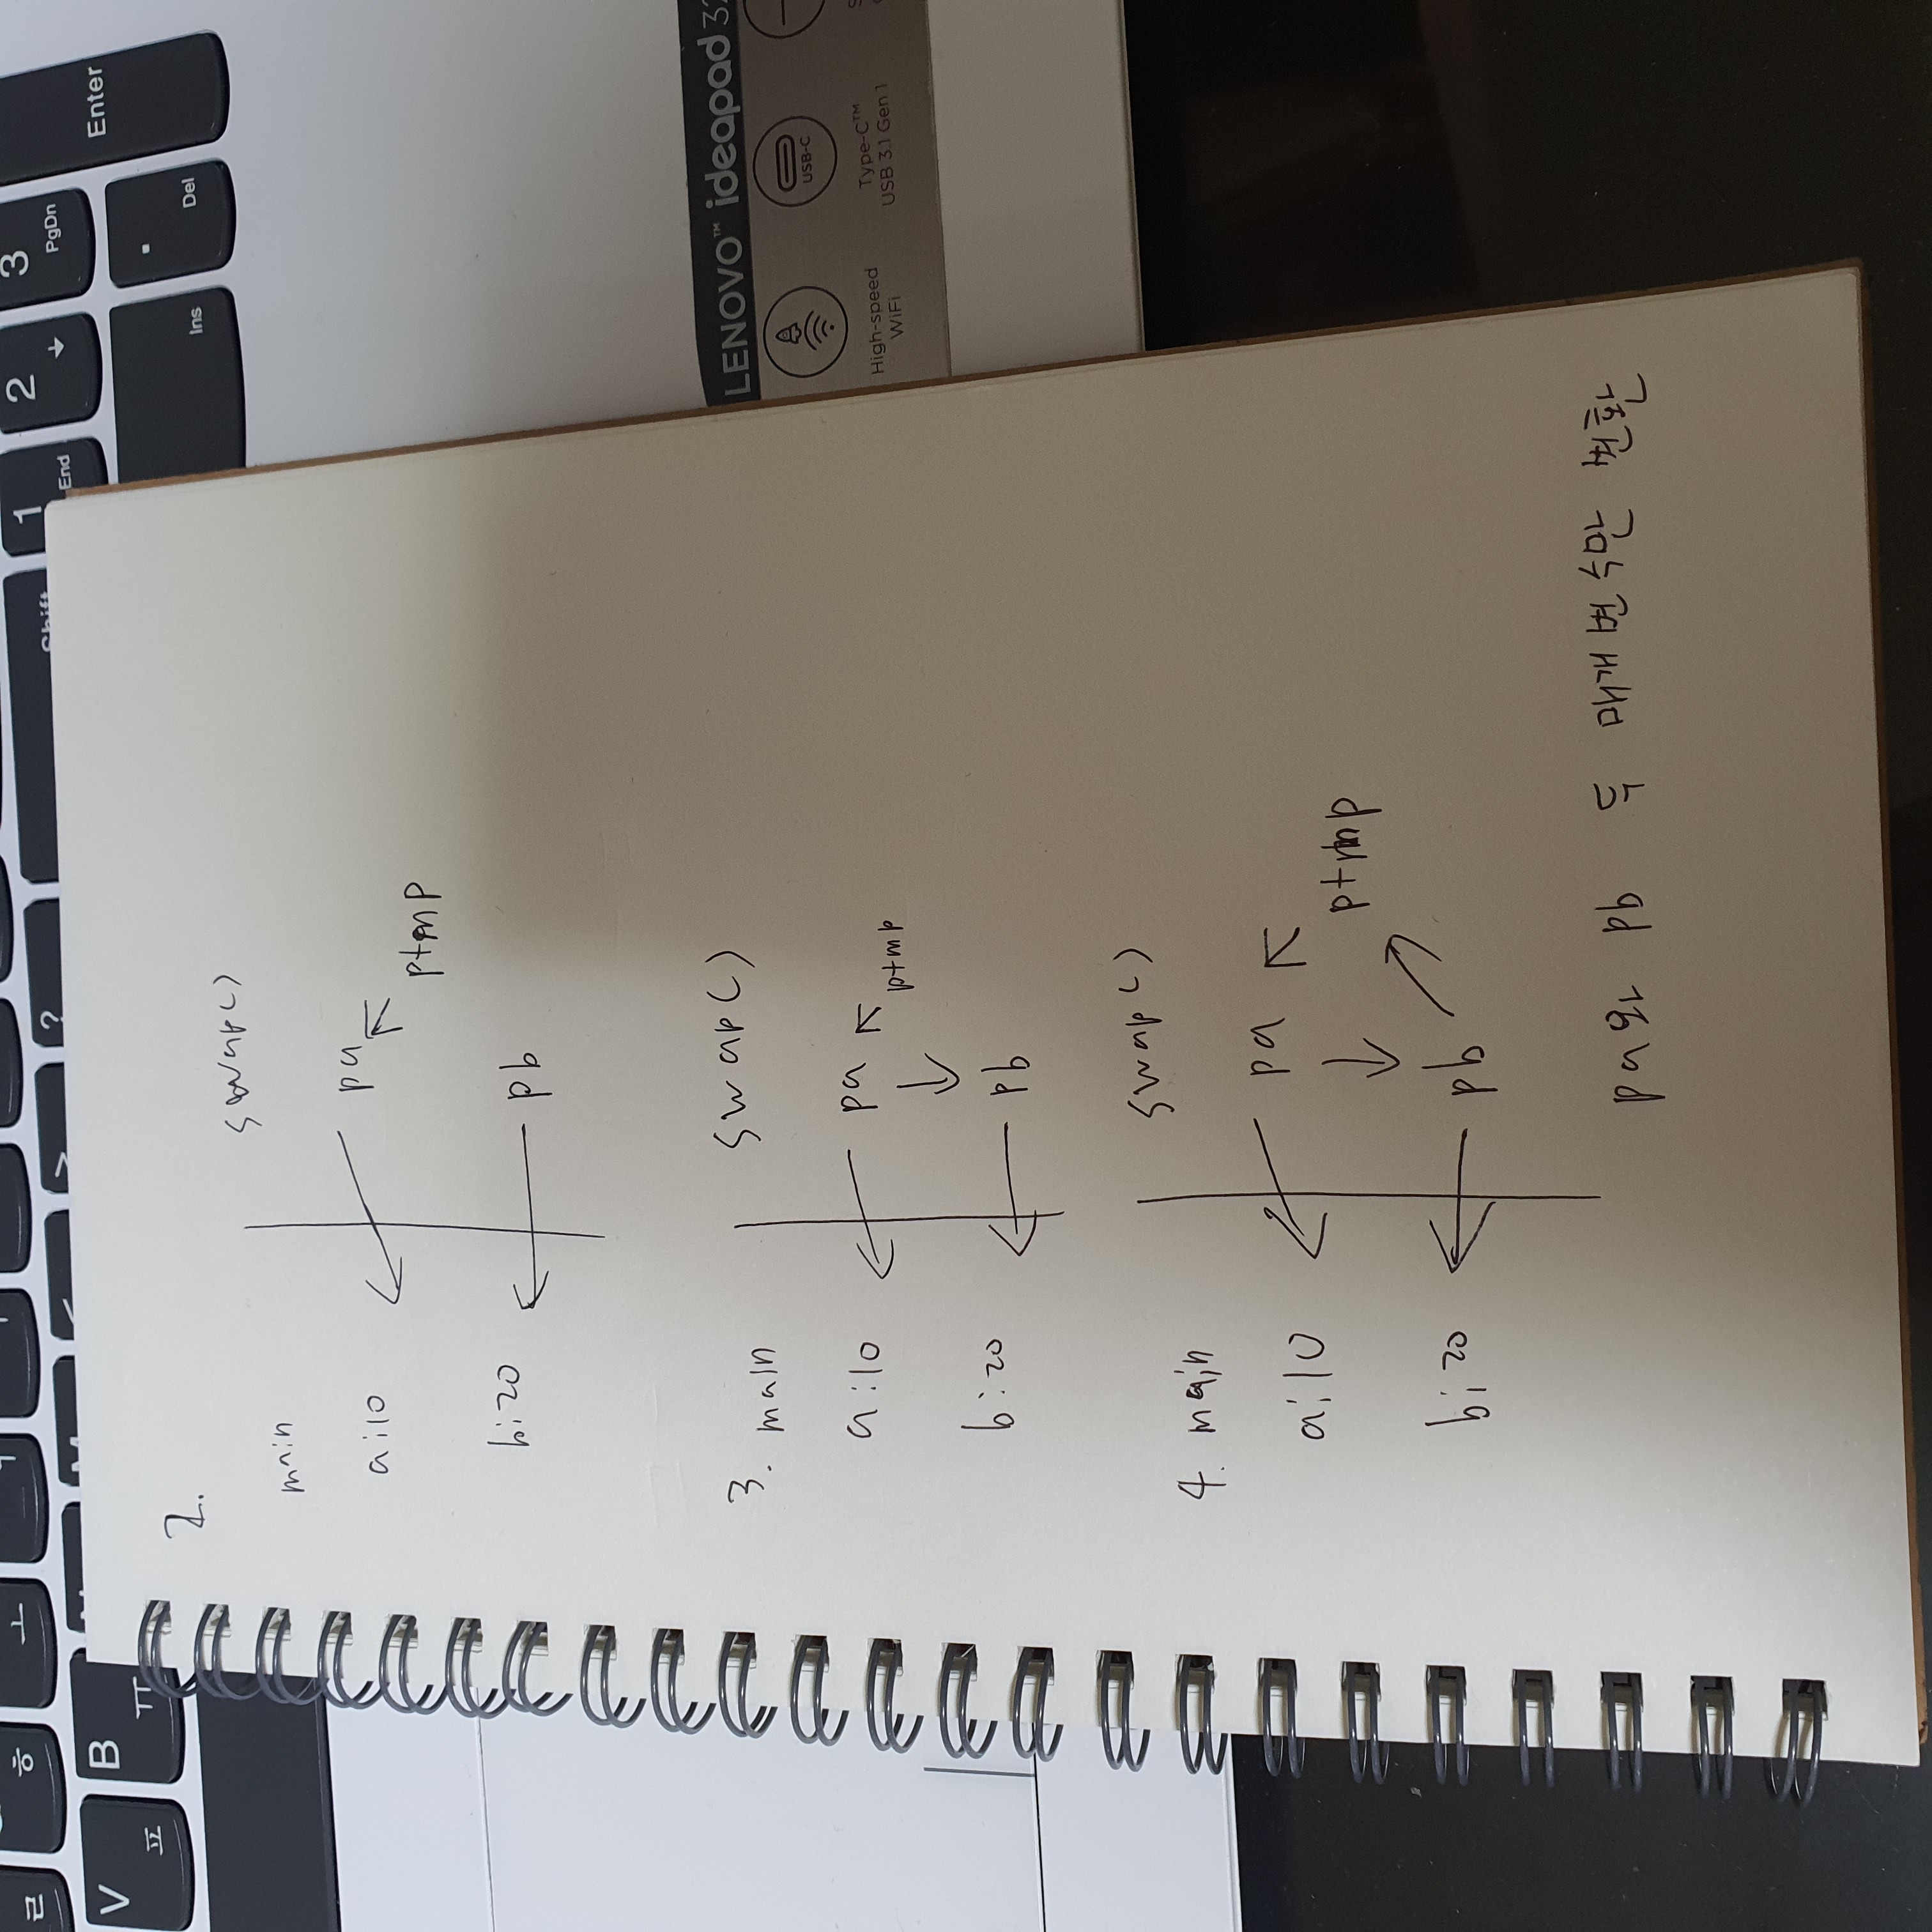 ㄹ ㅎ ㅗ
? Shift 1 End 2 3 PgDn
V ㅍ B ㅠ Enter
Ins Del
2.
swap()
main
a:10 pa
ptmp
b:20 pb
3. main swap()
a:10 pa
ptmp
b:20 pb
4. main swap()
a:10 pa
ptmp
b:20 pb
pa와 pb 두 매개변수만 변환
LENOVO™ ideapad
USB-C
High-speed
WiFi
Type-C™
USB 3.1 Gen 1